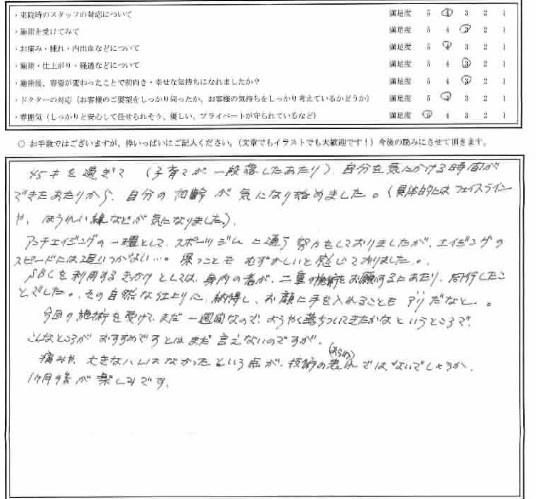 ・来院時のスタッフの対応について 満足度 5 4 3 2 1
・施術を受けてみて 満足度 5 4 3 2 1
・お痛み・腫れ・内出血などについて 満足度 5 4 3 2 1
・施術・仕上がり・経過などについて 満足度 5 4 3 2 1
・施術後、容姿が変わったことで前向き・幸せな気持ちになれましたか? 満足度 5 4 3 2 1
・ドクターの対応(お客様のご要望をしっかり伺ったか、お客様の気持ちをしっかり考えているかどうか) 満足度 5 4 3 2 1
・雰囲気(しっかりと安心して任せられそう、優しい、プライベートが守られているなど) 満足度 5 4 3 2 1
○ お手数ではございますが、枠いっぱいにご記入ください。(文章でもイラストでも大歓迎です!)今後の励みにさせて頂きます。
45才を過ぎて (子育てが一段落したあたり) 自分を気にかける時間が
できたあたりから、自分の加齢が気になり始めました。(具体的にはフェイスライン
や、ほうれい線などが気になりました)。
アンチエイジングの一環として、スポーツジムに通う努力をしておりましたが、エイジングの
スピードには追いつかない…。保つこともむずかしいと感じておりました。
SBCを利用するきっかけとしては、身内の者が、二重の施術をお願いするにあたり、同行したこ
とでした。その自然な仕上りに、納得し、お顔に手を入れることもアリだなと…。
今回の施術を受けて、まだ一週間なので、ようやく落ちついてきたかなというところで、
こんなところがおすすめですとはまだ言えないのですが、
痛みや、大きなハレはなかったという点が、技術の表れ(あらわれ)ではないでしょうか。
1ヶ月後が楽しみです。